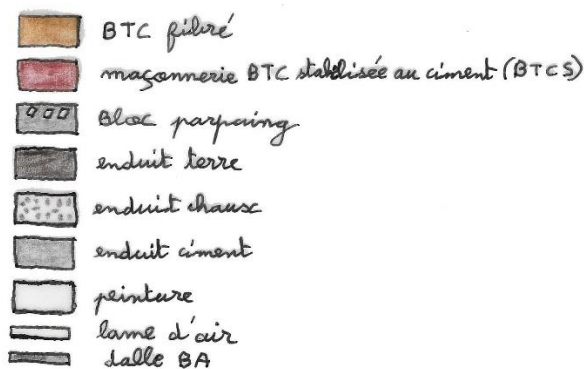 BTC fibré
maçonnerie BTC stabilisée au ciment (BTCS)
Bloc parpaing
enduit terre
enduit chaux
enduit ciment
peinture
lame d'air
dalle BA